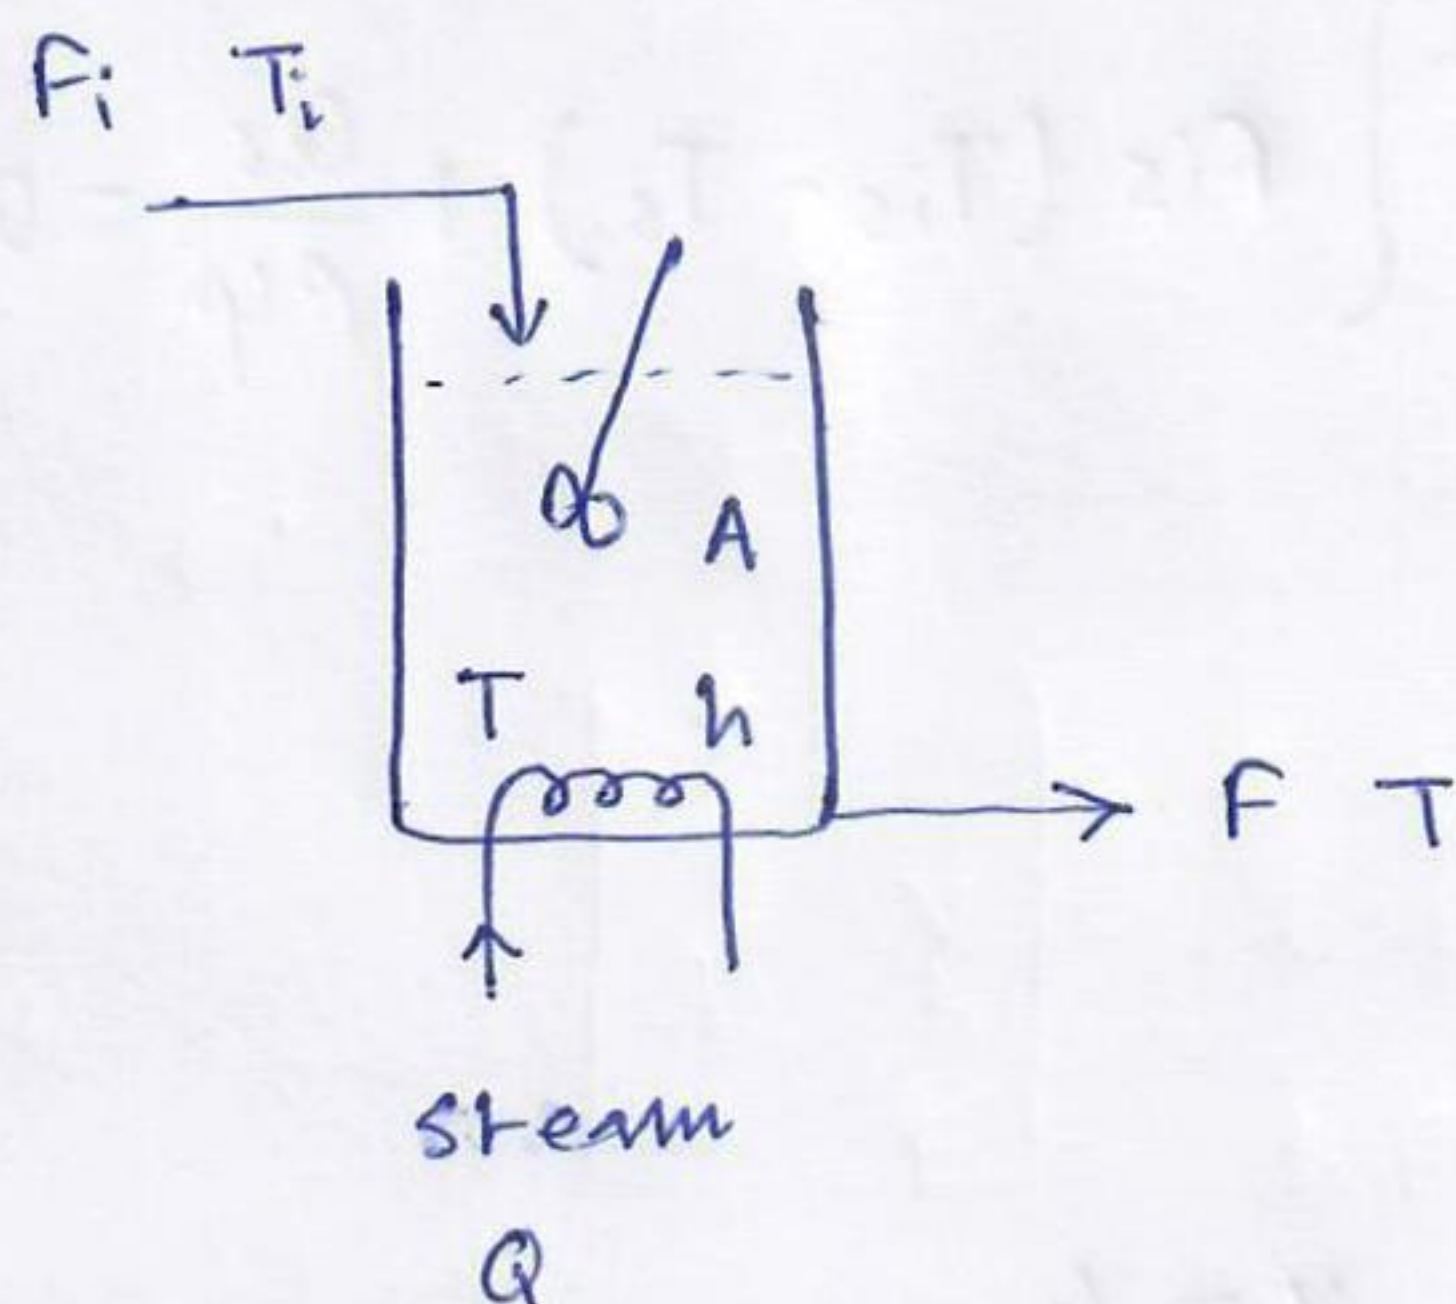 Fi Ti
A
T h
F T
steam
Q